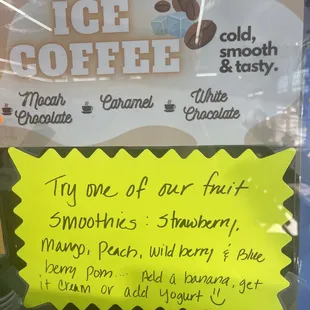 ICE
COFFEE
cold,
smooth
& tasty.
Mocah
Chocolate
Caramel
White
Chocolate
Try one of our fruit
Smoothies: Strawberry,
Mango, Peach, Wild berry & Blue
berry Pom... Add a banana, get
it Cream or add Yogurt